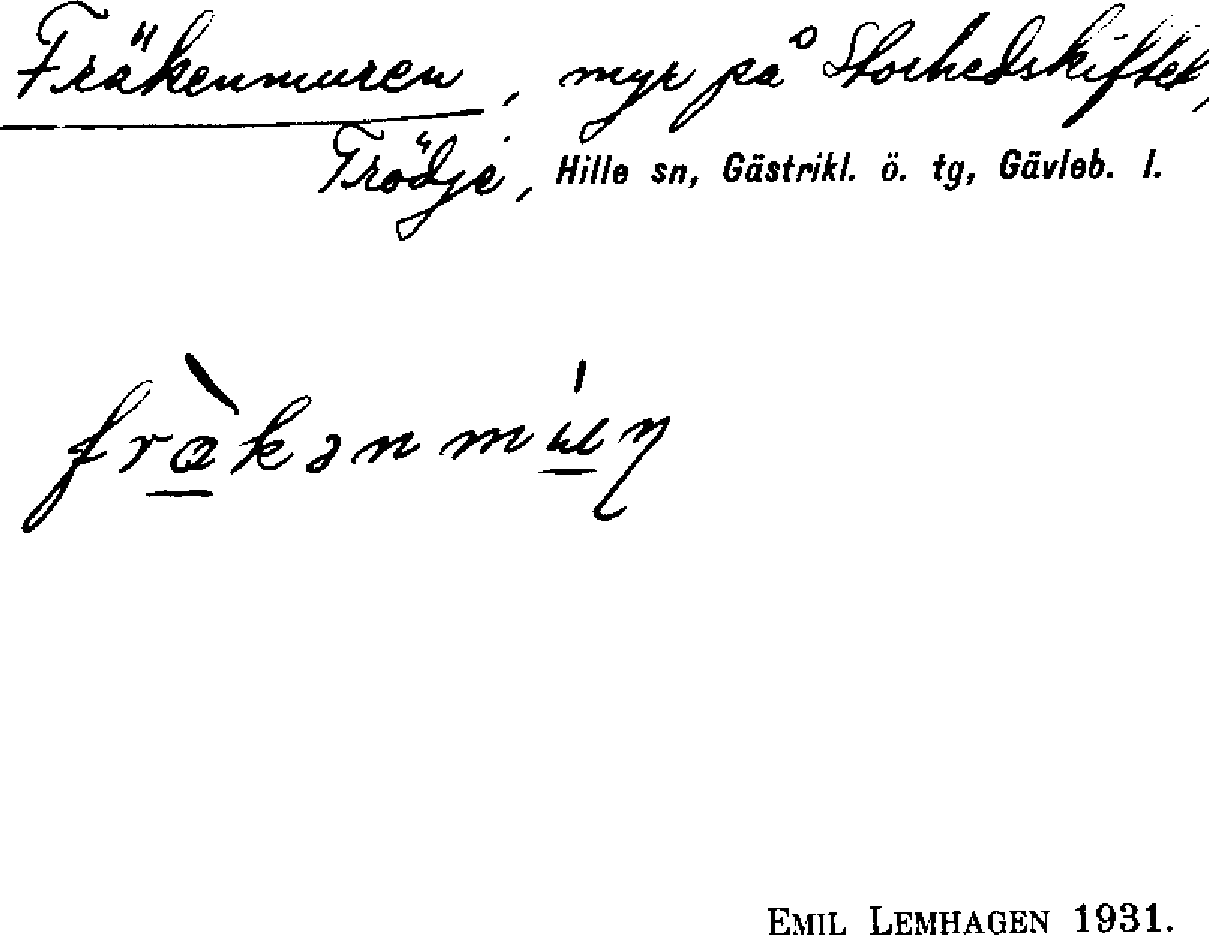 Fräkenmuren, myr på Storhedskiftet,
Trödje, Hille sn, Gästrikl. ö. tg, Gävleb. l.
fræ̀kənmúɳ
EMIL LEMHAGEN 1931.